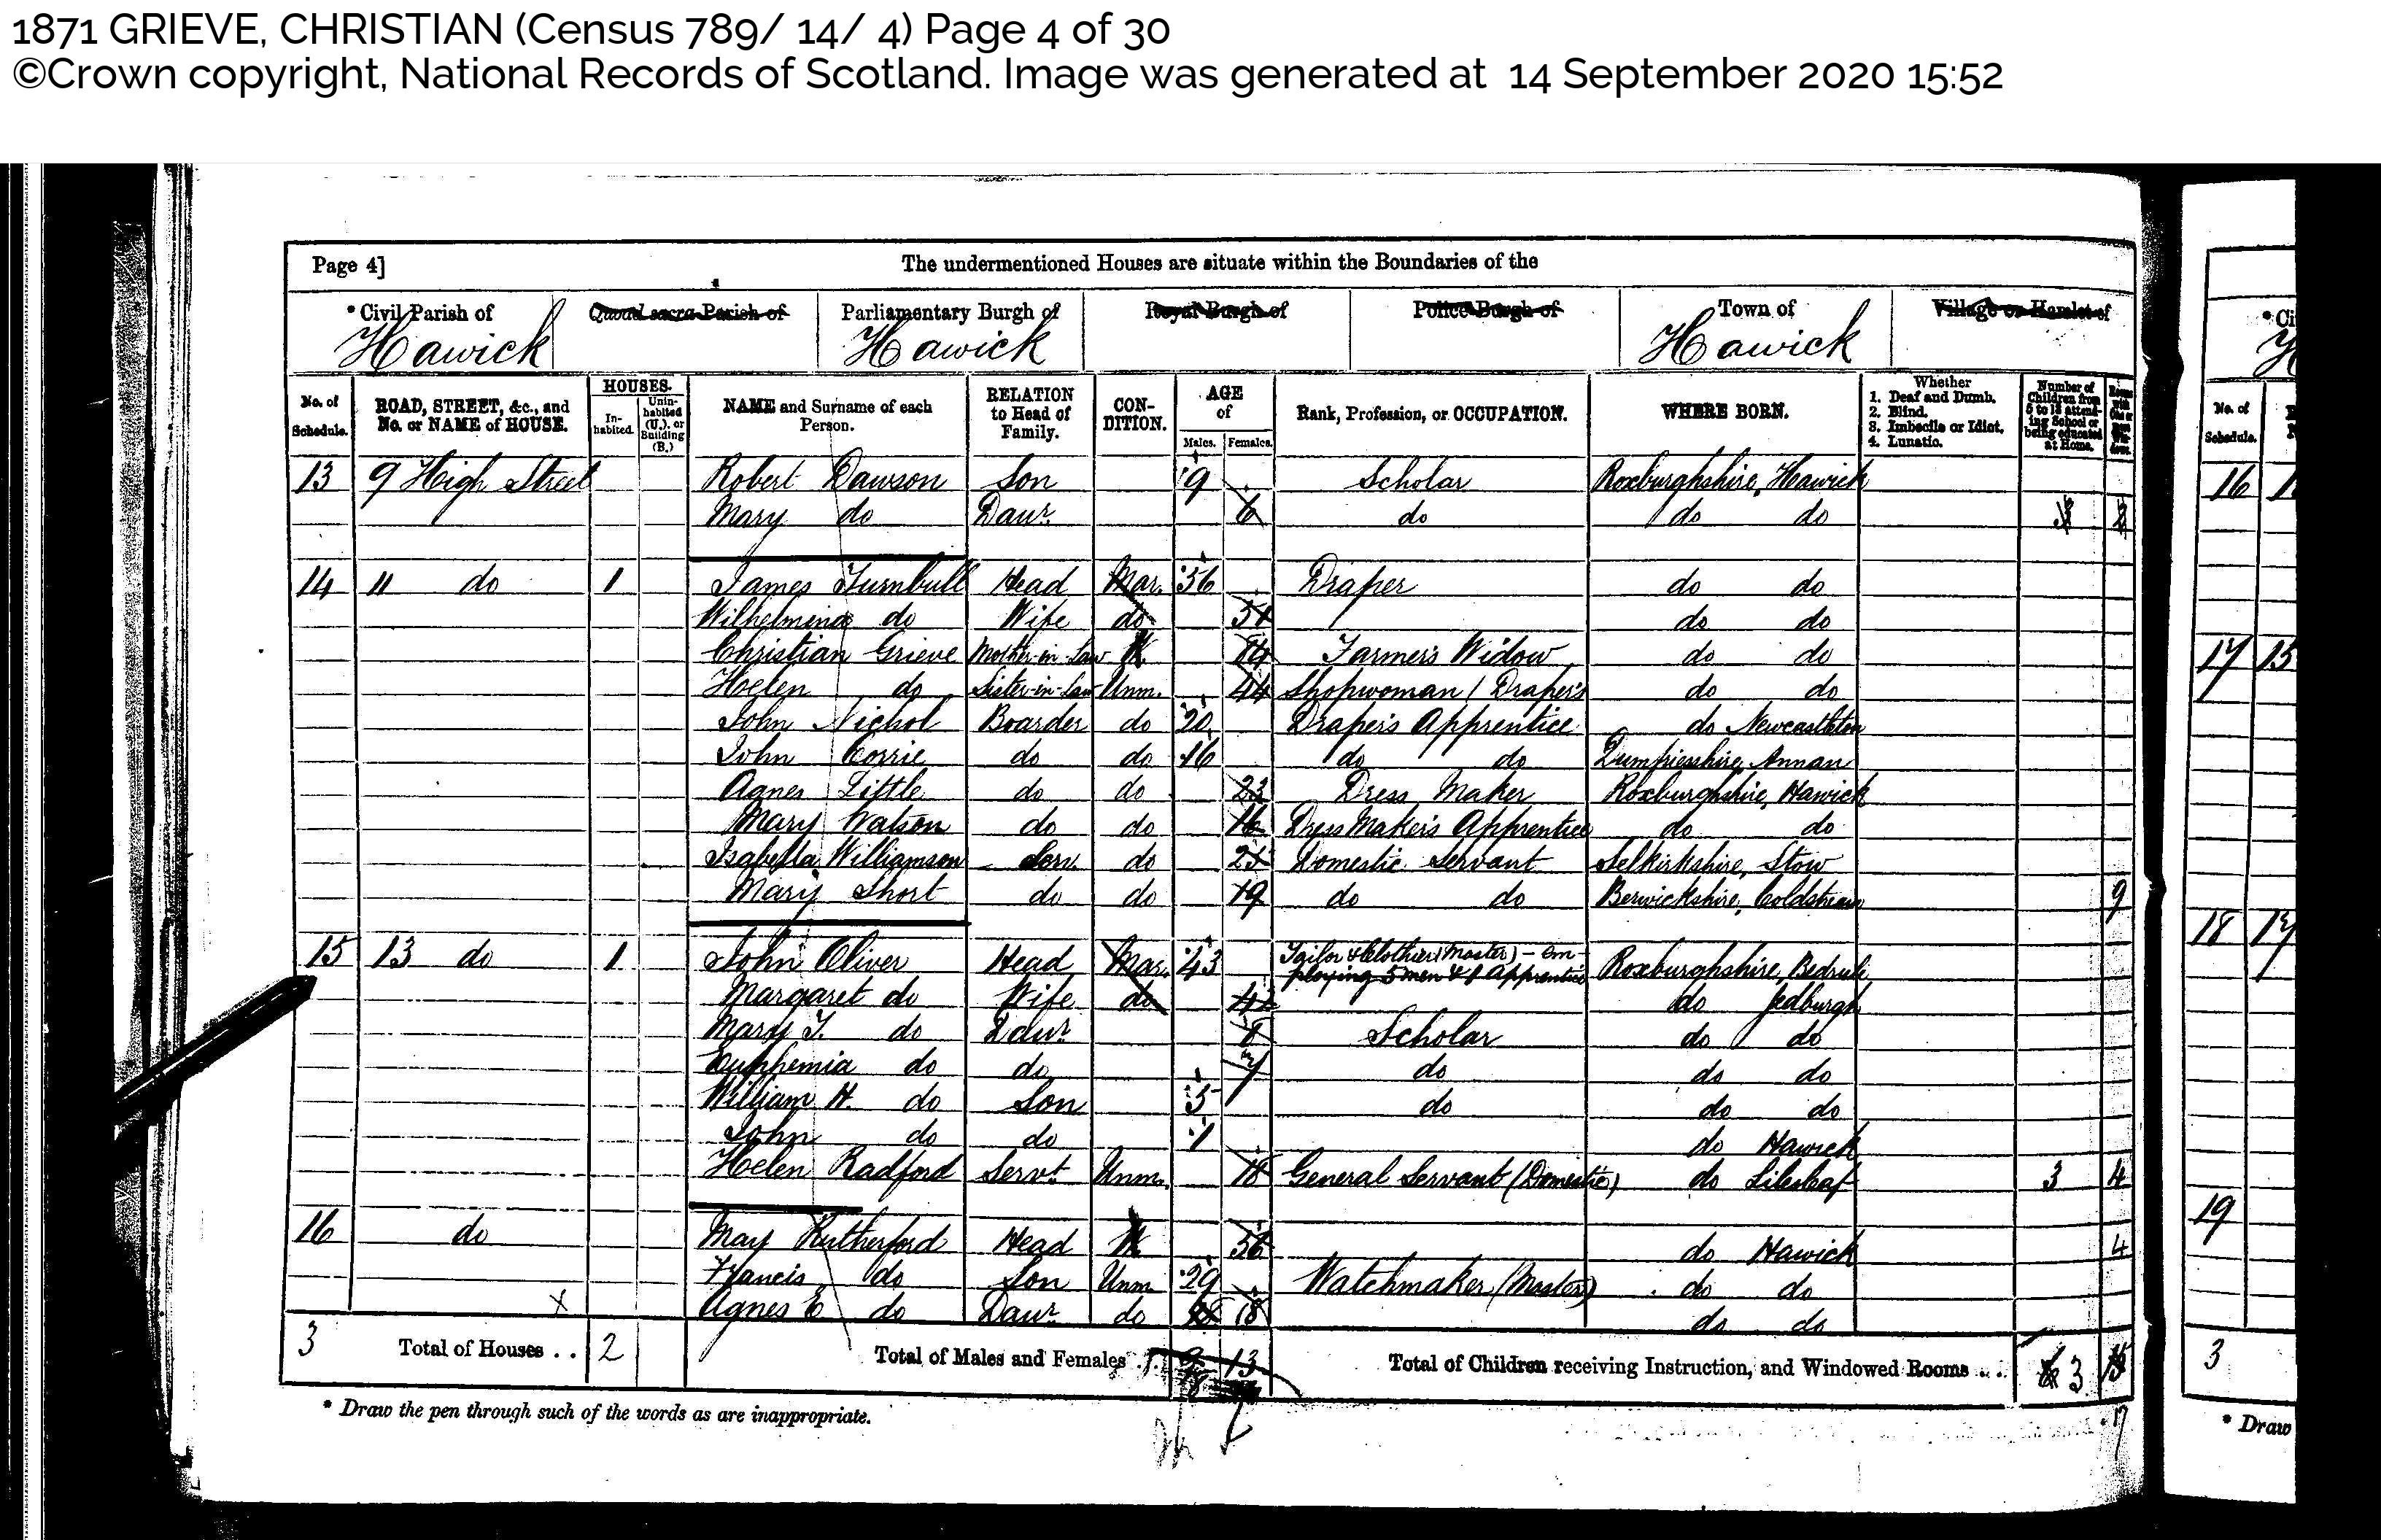 1871 GRIEVE, CHRISTIAN (Census 789/ 14/ 4) Page 4 of 30
©Crown copyright, National Records of Scotland. Image was generated at 14 September 2020 15:52
Page 4] The undermentioned Houses are situate within the Boundaries of the
* Civil Parish of Quoad sacra Parish of Parliamentary Burgh of Royal Burgh of Police Burgh of Town of Village or Hamlet of
Hawick Hawick Hawick
No. of Schedule. ROAD, STREET, &c., and No. or NAME of HOUSE. HOUSES. In-habited. Unin-habited (U.), or Building (B.) NAME and Surname of each Person. RELATION to Head of Family. CON-DITION. AGE of Males. Females. Rank, Profession, or OCCUPATION. WHERE BORN. Whether 1. Deaf and Dumb. 2. Blind. 3. Imbecile or Idiot. 4. Lunatic. Number of Children from 5 to 13 attending School or being educated at Home.
13 9 High Street Robert Dawson Son 9 Scholar Roxburghshire, Hawick
Mary do Daur. 6 do do do
14 11 do 1 James Turnbull Head Mar. 56 Draper do do
Wilhelmina do Wife do do do
Christian Grieve Mother-in-Law W. 84 Farmer's Widow do do
Helen do Sister-in-Law Unm. 44 Shopwoman / Draper's do do
John Nichol Boarder do 20 Draper's Apprentice do Newcastleton
John Corrie do do 16 do do Dumfriesshire, Annan
Agnes Little do do 23 Dress Maker Roxburghshire, Hawick
Mary Watson do do 16 Dress Maker's Apprentice do do
Isabella Williamson Serv. do Domestic Servant Selkirkshire, Stow
Mary Short do do 19 do do Berwickshire, Coldstream 9
15 13 do 1 John Oliver Head Mar. 43 Tailor & Clothier (Master) – em-
ploying 5 men & Apprentice Roxburghshire, Bedrule
Margaret do Wife do do Jedburgh
Mary T. do Daur. 8 Scholar do do
Euphemia do do 7 do do do
William H. do Son 5 do do do
John do do 1 do Hawick
Helen Radford Servt. Unm. 18 General Servant (Domestic) do Lilesleaf 3 4
16 do May Rutherford Head W. 56 do Hawick 4
Francis do Son Unm. 29 Watchmaker (Master) do do
Agnes E do Daur. do 18 do do
3 Total of Houses . . 2 Total of Males and Females . . 13 Total of Children receiving Instruction, and Windowed Rooms . . . 3
* Draw the pen through such of the words as are inappropriate.
17
No. of Schedule.
16
17 15
18 17
19
3
* Draw